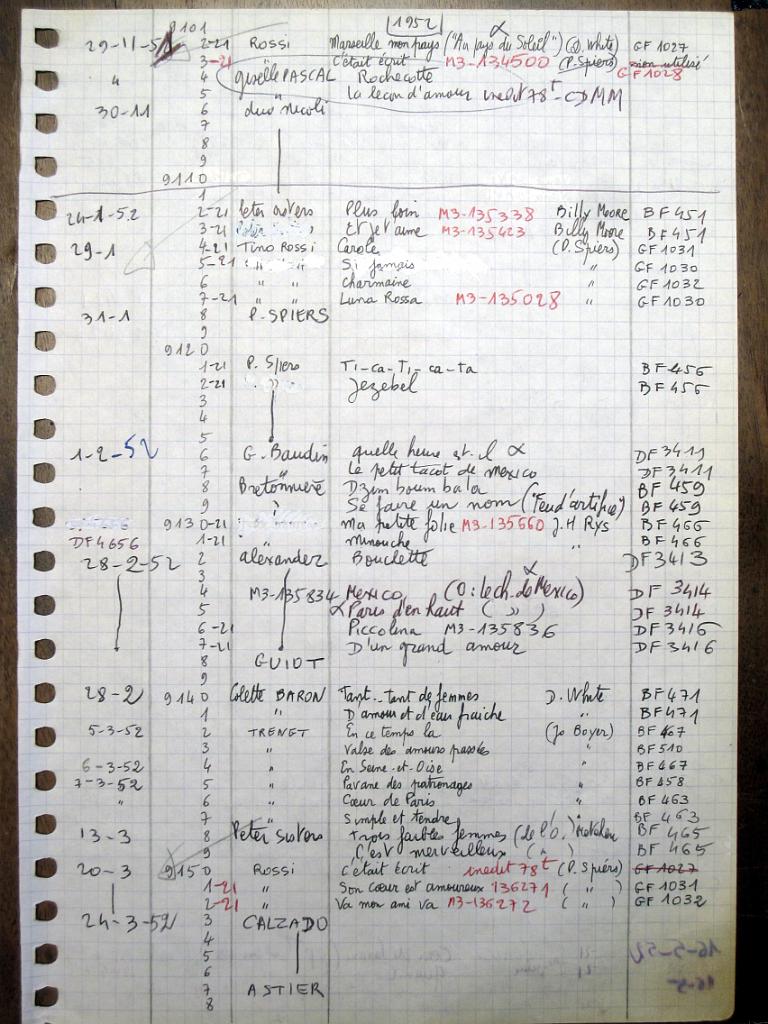 9101 1952
29-11-51 2-21 ROSSI Marseille mon pays ("Au pays du Soleil") (D. White) GF 1027
3-21 " C'était écrit M3-134500 (P. Spiers) non utilisé
" 4 giselle PASCAL Rochecotte GF 1028
5 " la leçon d'amour inedit 78t - CDMM
30-11 6 duo nicoli
7
8
9
9110
1
24-1-52 2-21 Peter sisters Plus loin M3-135338 Billy Moore BF 451
3-21 " Et je t'aime M3-135423 Billy Moore BF 451
29-1 4-21 Tino Rossi Carole (P. Spiers) GF 1031
5-21 Si jamais " GF 1030
6 " " charmaine " GF 1032
7-21 " " Luna Rossa M3-135028 " GF 1030
31-1 8 P. SPIERS
9
9120
1-21 P. Spiers Ti-ca-Ti-ca-ta BF 456
2-21 " Jezebel BF 456
3
4
5
1-2-52 6 G. Baudin quelle heure est-il α DF 3411
7 " Le petit tacot de mexico DF 3411
8 Bretonnière Dzim boum bala BF 459
9 Se faire un nom ("Feu d'artifice") BF 459
9130-21 ma petite folie M3-135660 J.H Rys BF 466
DF4656 1-21 minouche " BF 466
28-2-52 2 alexander Bouclette DF 3413
3
4 M3-135834 Mexico (O: le ch. de Mexico) DF 3414
5 α Paris d'en haut ( " ) DF 3414
6-21 Piccolina M3-135836 DF 3416
7-21 D'un grand amour DF 3416
8 GUIOT
9
28-2 9140 Colette BARON Tant-tant de femmes D. White BF 471
1 " D'amour et d'eau fraiche " BF 471
5-3-52 2 TRENET En ce temps la (Jo Boyer) BF 467
3 " Valse des amours passées " BF 510
6-3-52 4 " En Seine-et-Oise " BF 467
7-3-52 5 " Pavane des patronages " BF 458
" 6 " Cœur de Paris " BF 463
7 " Simple et tendre " BF 463
13-3 8 Peter Sisters trois faibles femmes (de l'O.) BF 465
9 C'est merveilleux ( " ) BF 465
20-3 9150 ROSSI C'était écrit inedit 78t (P. Spiers) GF 1027
1-21 " Son cœur est amoureux 136271 ( " ) GF 1031
2-21 " Va mon ami va M3-136272 ( " ) GF 1032
24-3-52 3 CALZADO
4
5
6
7 ASTIER
8